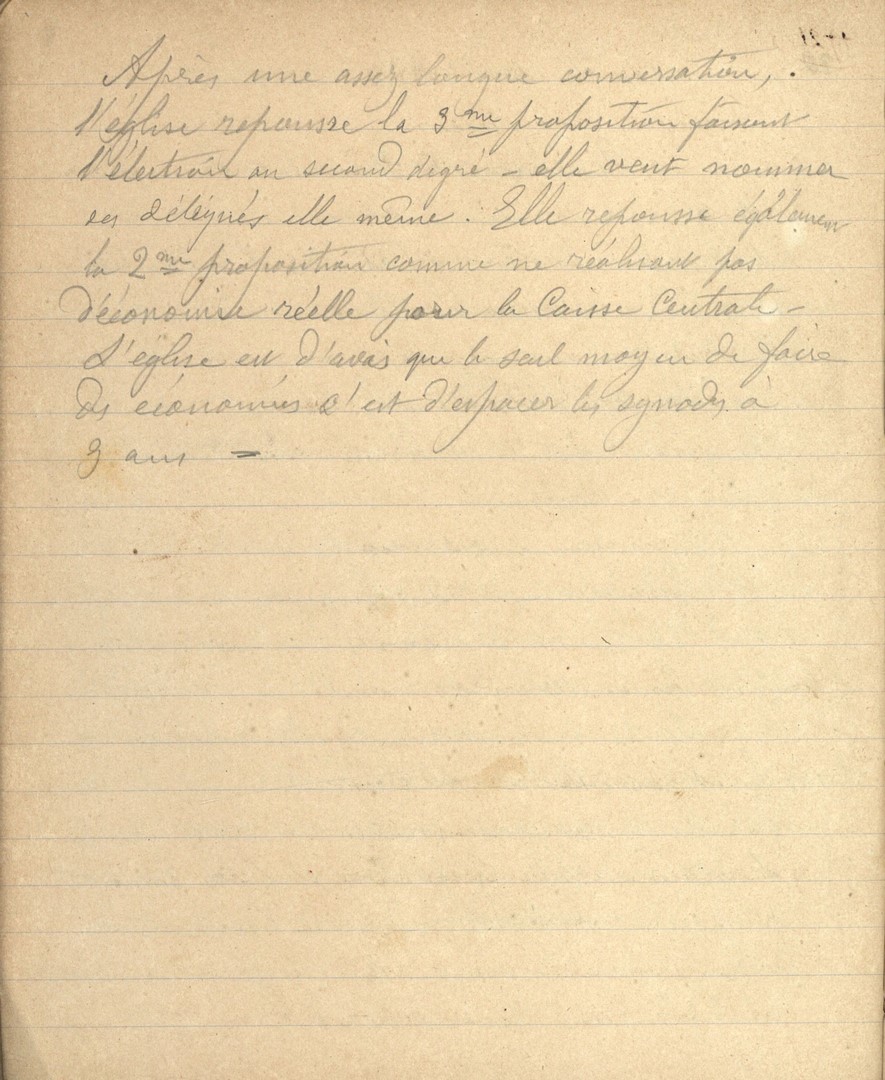 Après une assez longue conversation,
l'église repousse la 3me proposition faisant
l'élection au second degré – elle veut nommer
ses délégués elle même. Elle repousse également
la 2me proposition comme ne réalisant pas
d'économie réelle pour la Caisse Centrale –
L'église est d'avis que le seul moyen de faire
des économies c'est d'espacer les synodes à
3 ans =